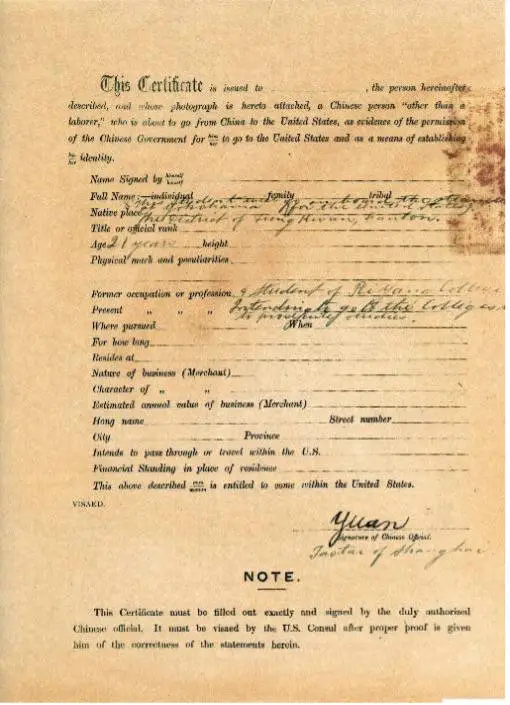 This Certificate is issued to , the person hereinafter
described, and whose photograph is hereto attached, a Chinese person "other than a
laborer," who is about to go from China to the United States, as evidence of the permission
of the Chinese Government for him her to go to the United States and as a means of establishing
his her identity.
Name Signed by himself herself
Full Name: individual family tribal
Native place the District of Canton.
Title or official rank
Age 21 years height
Physical mark and peculiarities
Former occupation or profession a Student of College
Present " " " Intending to go to the Colleges
Where pursued to studies. When
For how long
Resides at
Nature of business (Merchant)
Character of " "
Estimated annual value of business (Merchant)
Hong name Street number
City Province
Intends to pass through or travel within the U.S.
Financial Standing in place of residence
This above described is entitled to come within the United States.
VISAED.
Yuan
Signature of Chinese Official.
Taotai of Shanghai
NOTE.
This Certificate must be filled out exactly and signed by the duly authorised
Chinese official. It must be visaed by the U.S. Consul after proper proof is given
him of the correctness of the statements herein.